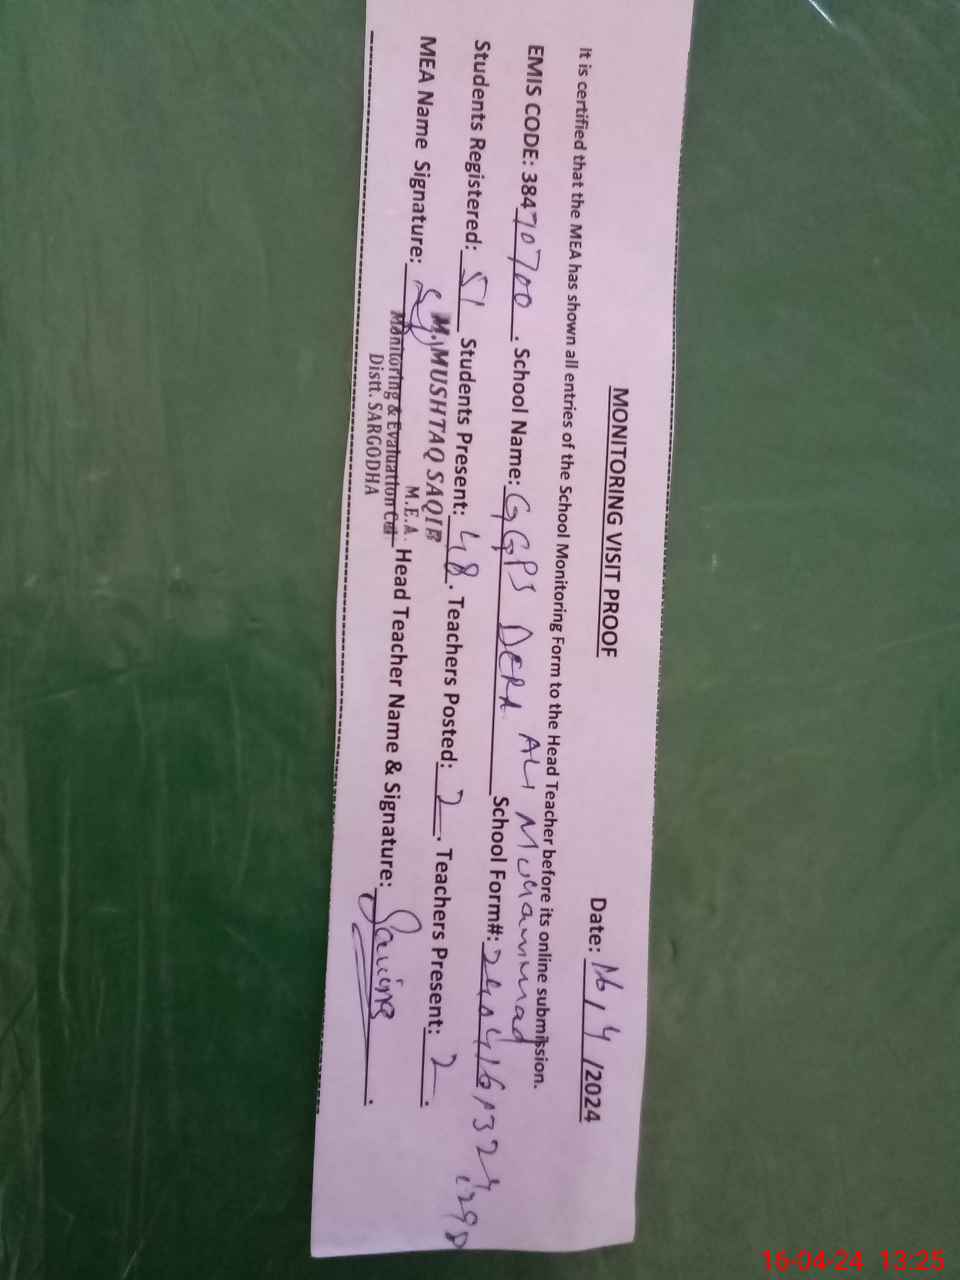 MONITORING VISIT PROOF
Date: 16/4/2024
It is certified that the MEA has shown all entries of the School Monitoring Form to the Head Teacher before its online submission.
EMIS CODE: 38470700. School Name: GGPS DERA ALI Muhammad School Form#:
Students Registered: 51 Students Present: 48. Teachers Posted: 2. Teachers Present: 2.
MEA Name Signature: Head Teacher Name & Signature:
M. MUSHTAQ SAQIB
M.E.A.
Monitoring & Evaluation Cell
Distt. SARGODHA
16-04-24 13:25